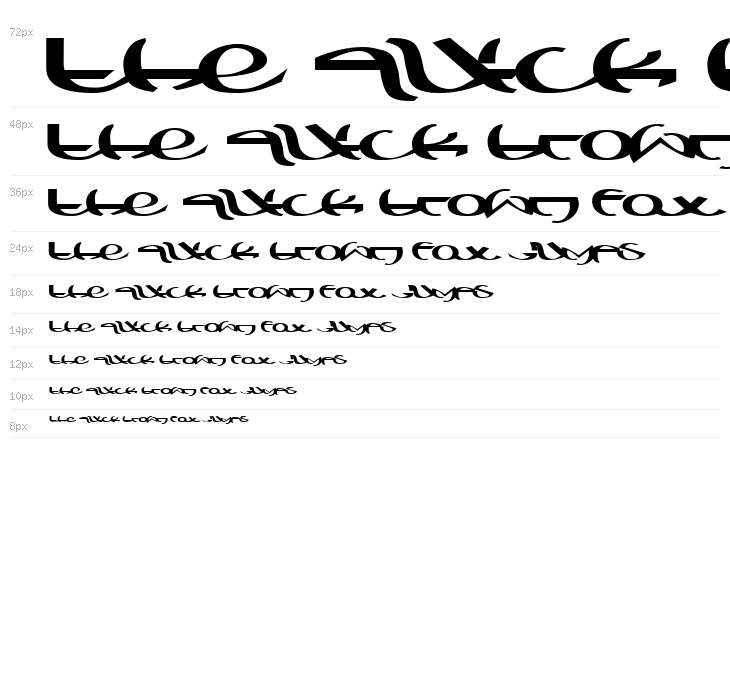 72px the quick b
48px the quick brown
36px the quick brown fox
24px the quick brown fox jumps
18px the quick brown fox jumps
14px the quick brown fox jumps
12px the quick brown fox jumps
10px the quick brown fox jumps
8px the quick brown fox jumps